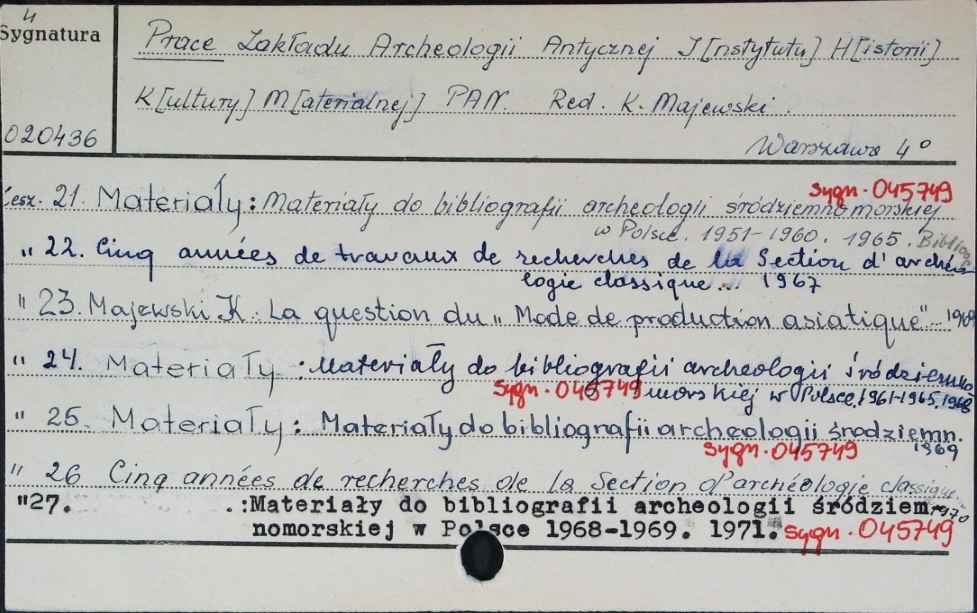 4
Sygnatura
020436
Prace Zakładu Archeologii Antycznej I[nstytutu] H[istorii]
K[ultury] M[aterialnej] PAN. Red. K. Majewski.
Warszawa 4°
sygn. 045749
Zesz. 21. Materiały: Materiały do bibliografii archeologii śródziemnomorskiej
w Polsce. 1951-1960. 1965.
" 22. Cinq années de travaux de recherches de la Section d'archéo
logie classique... 1967
" 23. Majewski K.: La question du "Mode de production asiatique"
" 24. Materiały: Materiały do bibliografii archeologii śródziemno
sygn. 045749 morskiej w Polsce, 1961-1965, 1968
" 25. Materiały: Materiały do bibliografii archeologii środziemn.
1969
sygn. 045749
" 26 Cinq années de recherches de la Section d'archéologie classique
1970
"27. .:Materiały do bibliografii archeologii śródziem-
nomorskiej w Polsce 1968-1969. 1971. sygn. 045749